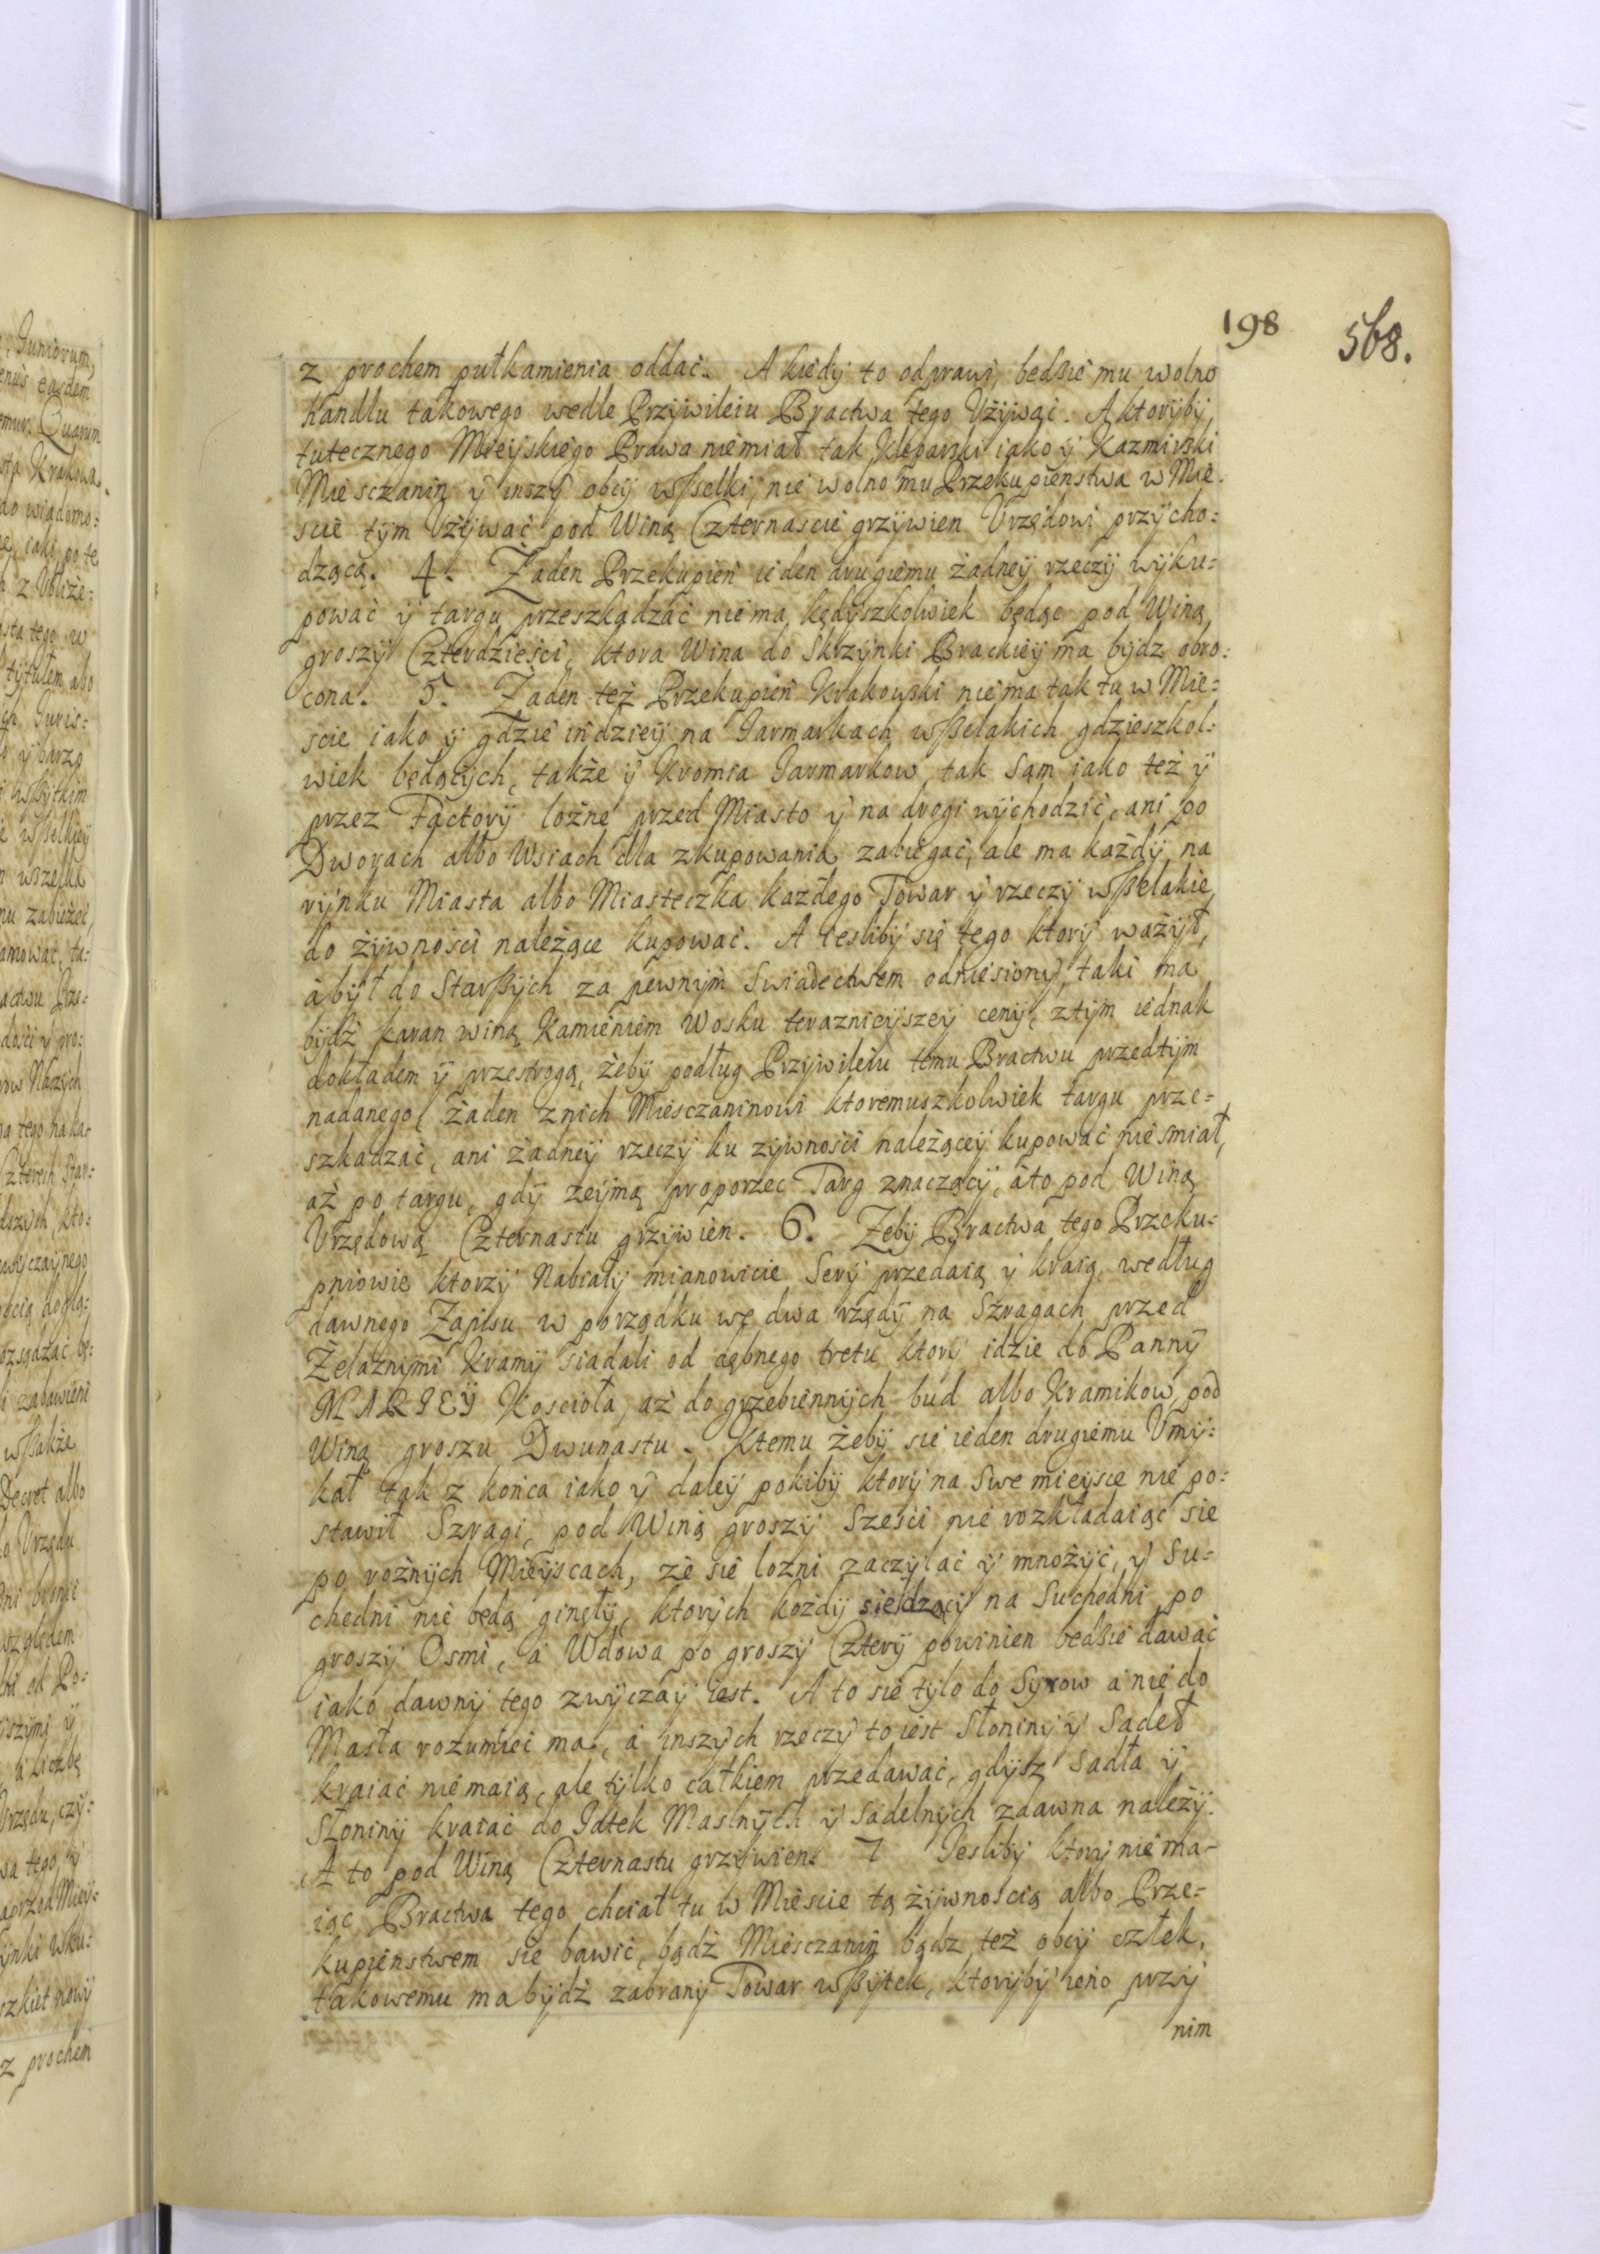 198 568.
z prochem pułkamienia oddać. A kiedy to odprawi, bedzie mu wolno
Handlu takowego wedle Przywileiu Bractwa tego Używać. A ktoryby
tutecznego Mieyskiego Prawa niemiał tak Kleparski iako y Kazmirski
Miesczanin y inszy obcy wszelki, nie wolno mu Przekupienstwa w Mie-
scie tym Używać pod Winą Czternascie grzywien Vrzędowi przycho:
dzącą. 4. Żaden Przekupień ieden drugiemu żadney rzeczy wyku:
pować y targu przeszkadzać niema, kędyszkolwiek będąc pod Winą
groszy Czterdzieści, ktora Wina do Skrzynki Brackiey ma bydz obro:
cona. 5. Żaden też Przekupień Krakowski niema tak tu w Mie:
scie iako y gdzie indziey na Iarmarkach wszelakich gdzieszkol:
wiek będących, także y Kromia Iarmarkow, tak Sam iako też y
przez Factory lożne przed Miasto y na drogi wychodzić, ani po
Dworach albo Wsiach dla zkupowania zabiegać, ale ma każdy na
rynku Miasta albo Miasteczka każdego Towar y rzeczy wszelakie
do żywności należące kupować. A iesliby się tego ktory ważył,
á był do Starszych za pewnym Swiadectwem odniesiony, taki ma
bydź karan winą Kamieniem Wosku teraznieyszey ceny, z tym iednak
dokładem y przestrogą, żeby podług Przywileiu temu Bractwu przedtym
nadanego, żaden z nich Miesczaninowi ktoremuszkolwiek targu prze-
szkadzać, ani żadney rzeczy ku zywności należącey kupować nie smiał,
aż po targu, gdy zeymą proporzec Targ znaczący, áto pod Winą
Vrzędową Czternastu grzywien. 6. Żeby Bractwa tego Przeku-
pniowie ktorzy Nabiały mianowicie Sery przedaią y kraią, według
dawnego Zapisu w porządku we dwa rzędy na Szragach przed
Żelaznymi Kramy siadali od dębnego tretu ktory idzie do Panny
MARIEY Kościoła, aż do grzebiennych bud albo Kramikow, pod
Winą groszu Dwunastu. Ktemu żeby sie ieden drugiemu Vmy:
kał tak z końca iako y daley pokiby ktory na Swe mieysce nie po:
stawił Szragi, pod Winą groszy Sześci nie rozkładaiąc sie
po rożnych Mieyscach, że sie lożni zaczylać y mnożyć, y Su-
chedni nie będą ginęły, ktorych kożdy siedzący na Suchedni po
groszy Osmi, á Wdowa po groszy Cztery powinien bedzie dawać
iako dawny tego zwyczay iest. A to sie tylo do Syrow a nie do
Masła rozumieć ma, á inszych rzeczy to iest Słoniny y Sadeł
kraiać niemaią, ale tylko całkiem przedawać, gdysz Sadła y
Słoniny kraiać do Iatek Maslnych y Sadelnych zdawna należy.
A to pod Winą Czternastu grzywien. 7 Iesliby ktory niema-
iąc Bractwa tego chciał tu w Mieście tą żywnością albo Prze-
kupienstwem sie bawić, bądź Miesczanin bądz też obcy człek,
takowemu ma bydź zabrany Towar wszytek, ktoryby ieno przy
nim